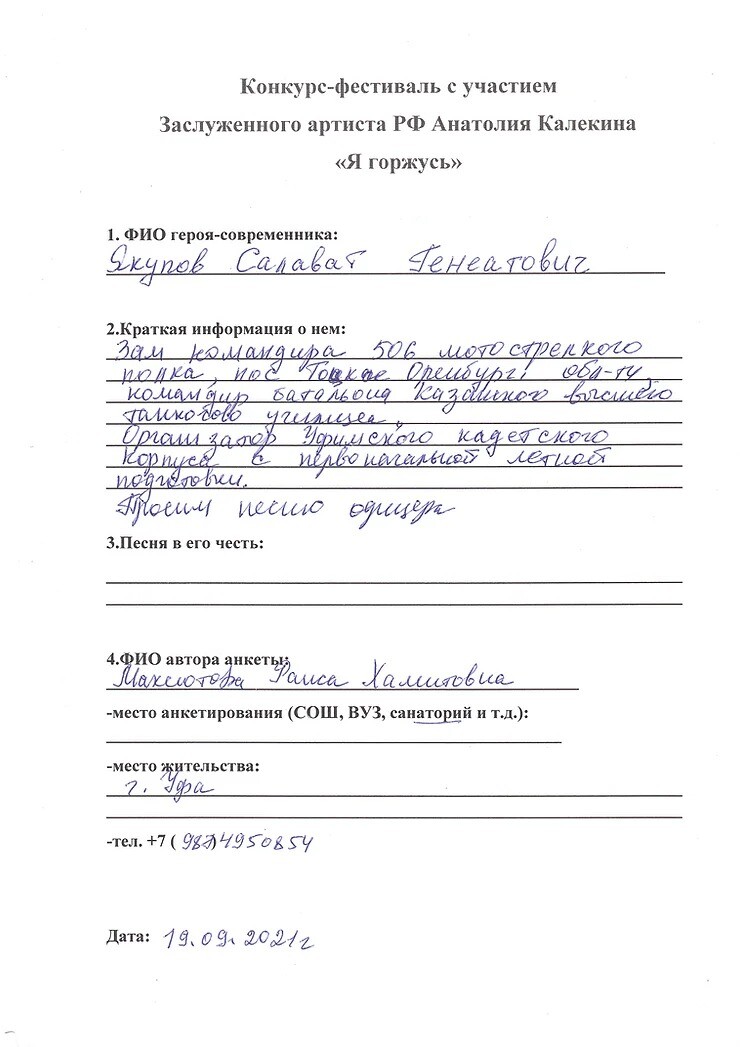 Конкурс-фестиваль с участием
Заслуженного артиста РФ Анатолия Калекина
«Я горжусь»
1. ФИО героя-современника:
Якупов Салават Генеатович
2.Краткая информация о нем:
Зам командира 506 мотострелкого
полка, пос Тоцкое Оренбург. обл-ти,
командир батальона Казанкого высшего
танкового училища.
Организатор Уфимского кадетского
корпуса с первоначальной летной
подготовки.
Просим песню офицера
3.Песня в его честь:
4.ФИО автора анкеты:
Максютова Раиса Хамитовна
-место анкетирования (СОШ, ВУЗ, санаторий и т.д.):
-место жительства:
г. Уфа
-тел. +7 ( 987)4950854
Дата: 19.09.2021г